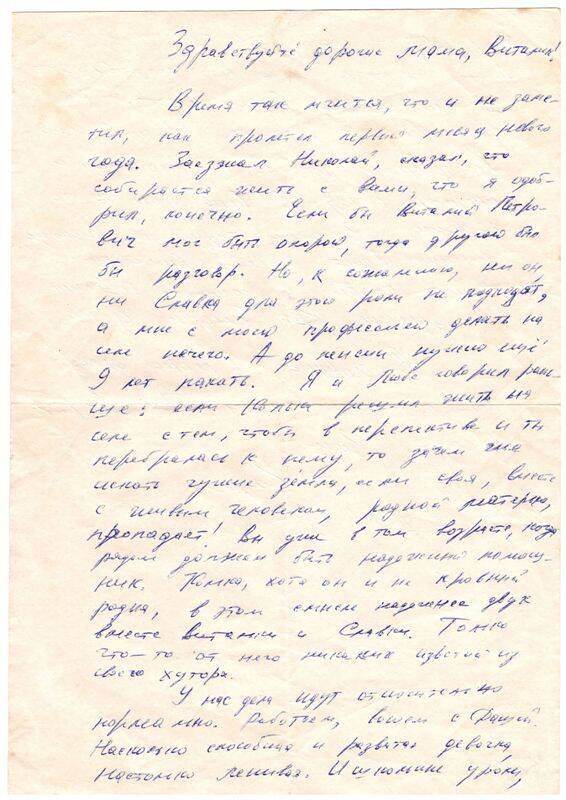 Здравствуйте дорогие мама, Виталик!
Время так мчится, что и не заме-
тил, как пролетел первый месяц нового
года. Заезжал Николай, сказал, что
собирается жить с вами, что я одоб-
рил, конечно. Если бы Виталий Петро-
вич мог быть опорой, тогда другой был
бы разговор. Но, к сожалению, ни он,
ни Славка для этой роли не подходят,
а мне с моей профессией делать на
селе нечего. А до пенсии нужно ещё
9 лет пахать. Я и Любе говорил рань-
ше: если Колька решил жить на
селе с тем, чтобы в перспективе и ты
перебралась к нему, то зачем
искать чужие земли, если своя, вместе
с живым человеком, родной матерью,
пропадает! Вы уже в том возрасте, когда
рядом должен быть надежный помощ-
ник. Колька, хотя он и не кровный
родня, в этом смысле надежнее двух
вместе Виталки и Славки. Только
что-то от него никаких известий из
своего хутора.
У нас дела идут относительно
нормально. Работаем, воюем с Дашей.
Насколько способная и развитая девочка,
настолько ленивая. И школьные уроки,